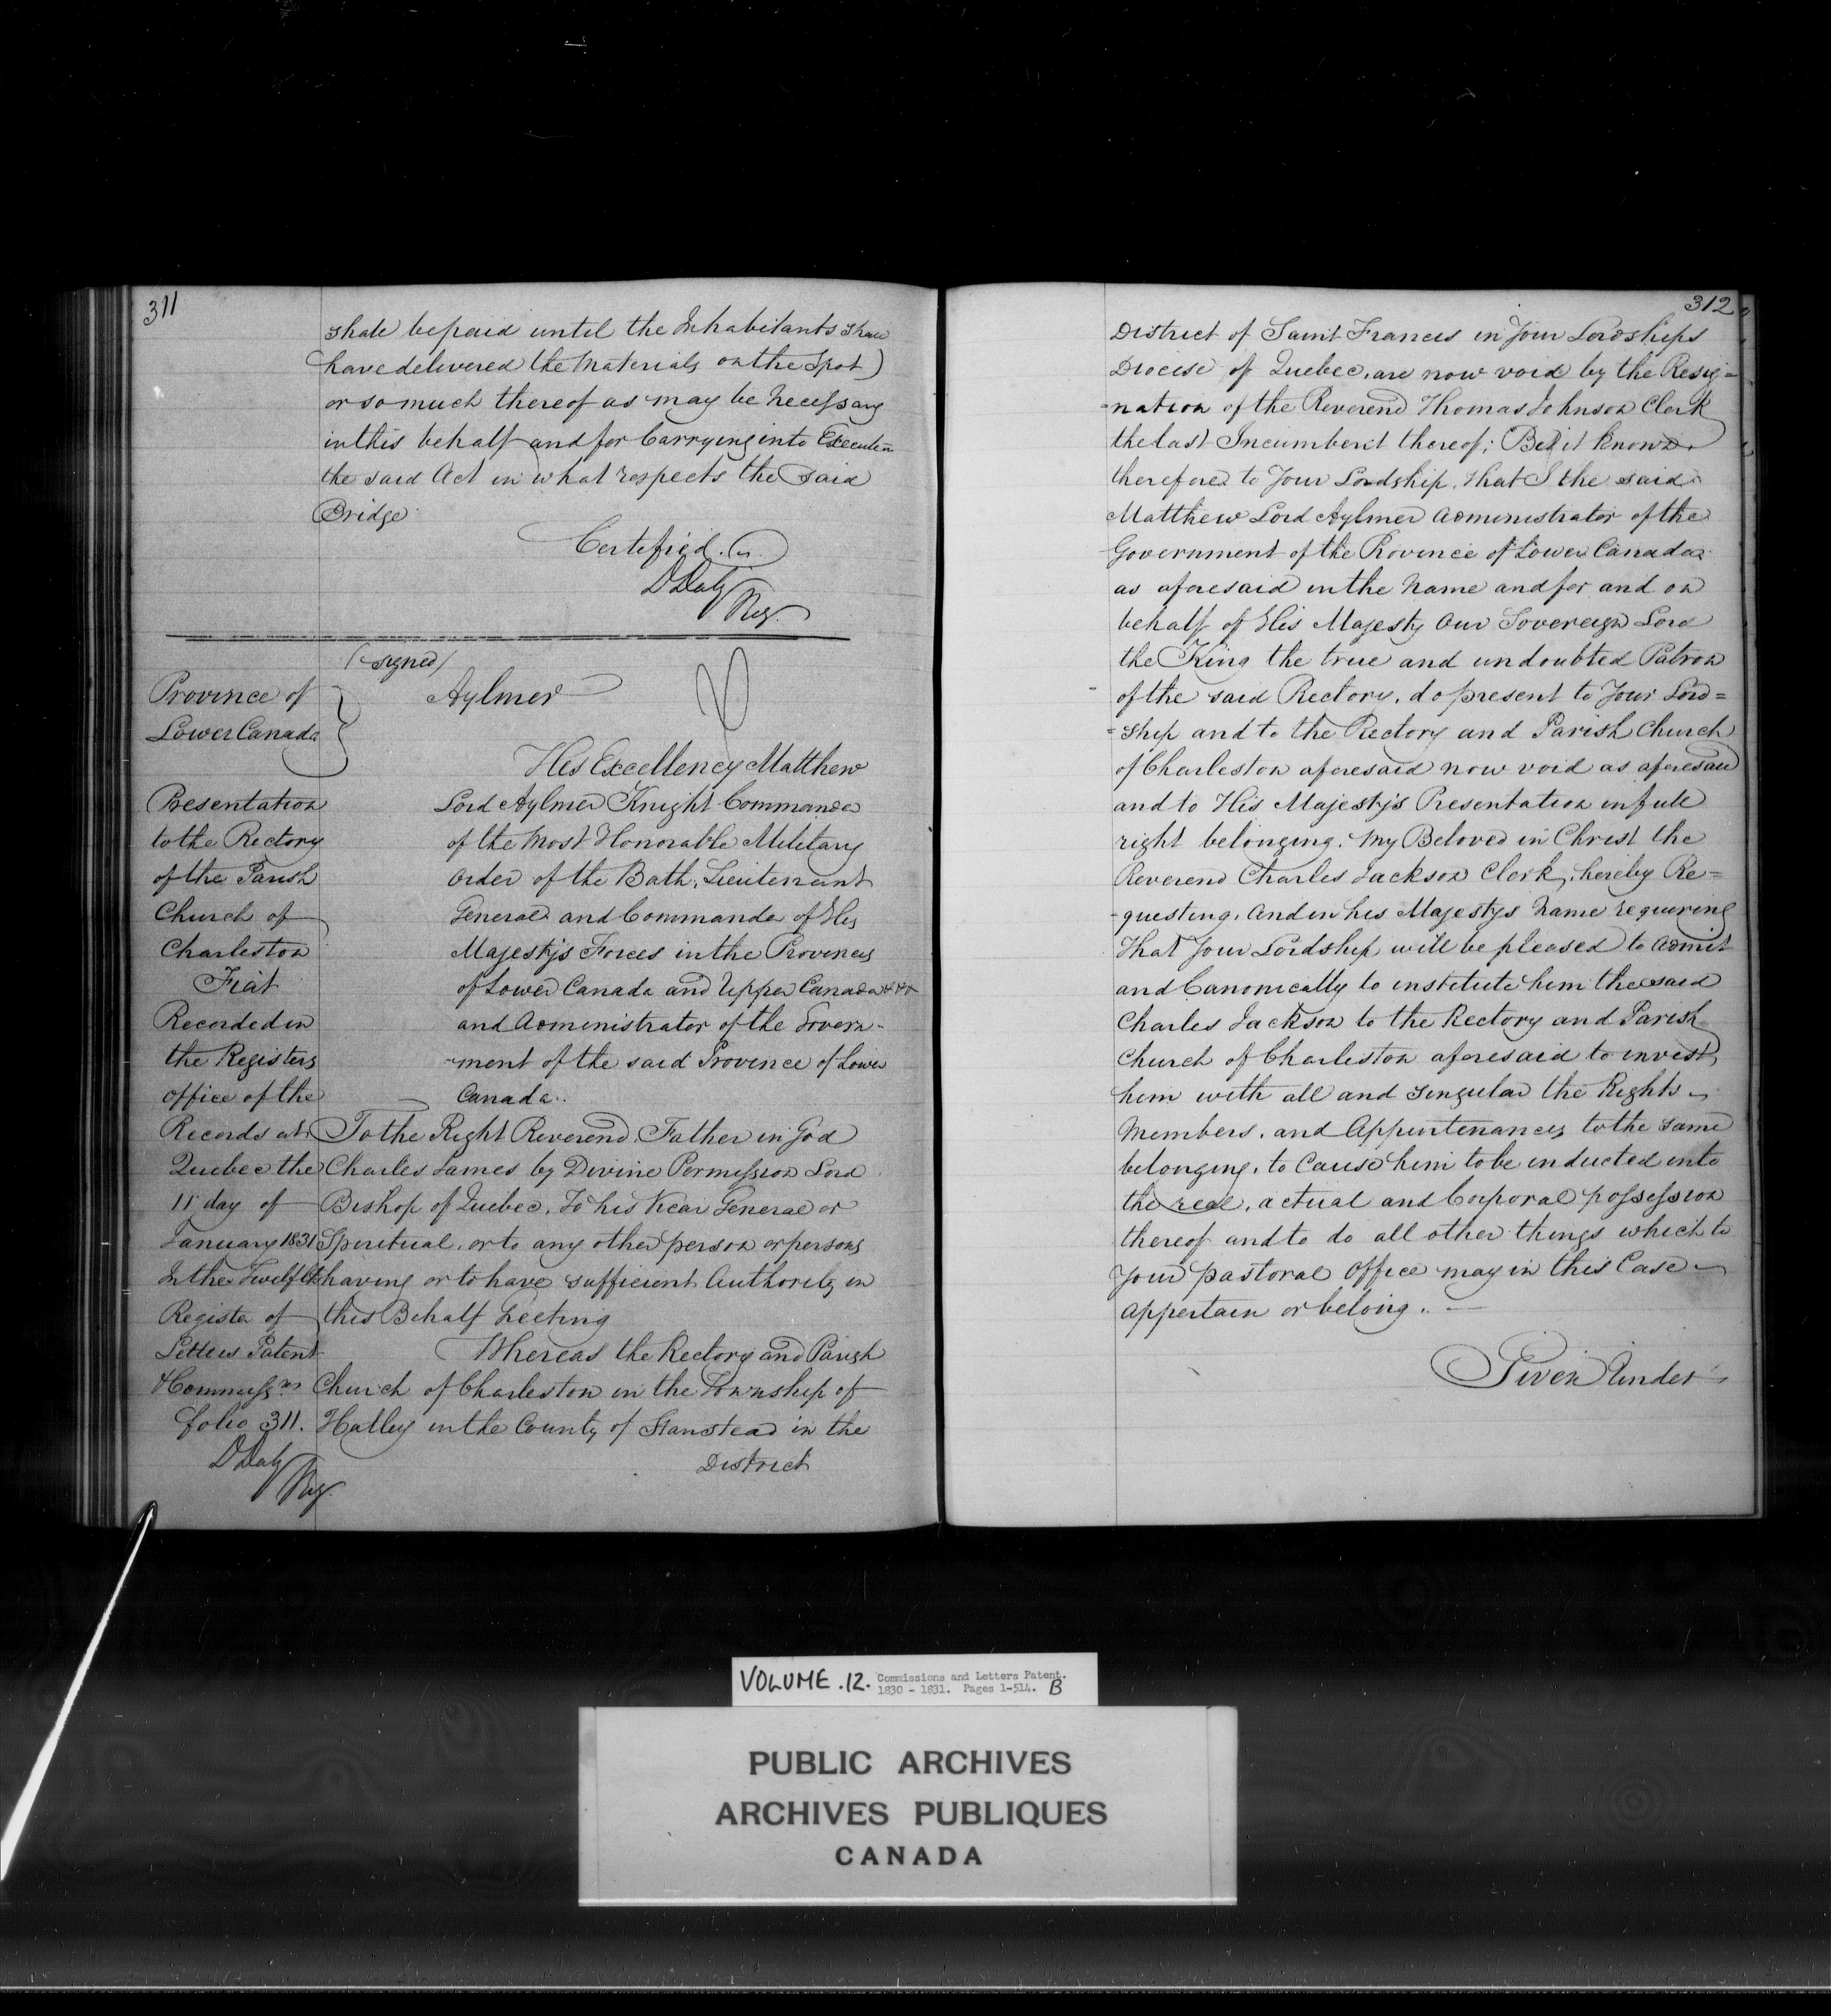 311
shall be paid until the Inhabitants shall
have delivered the Materials on the Spot)
or so much thereof as may be Necessary
in this behalf and for Carrying into Execution
the said Act in what respects the said
Bridge
Certified.
D Daly
Reg.
(signed)
Aylmer
Province of
Lower Canada
His Excellency Matthew
Lord Aylmer Knight Commander
of the Most Honorable Military
Order of the Bath, Lieutenant
General and Commander of His
Majesty's Forces in the Provinces
of Lower Canada and Upper Canada &&&
and Administrator of the Govern-
-ment of the said Province of Lower
Canada..
Presentation
to the Rectory
of the Parish
Church of
Charleston
Fiat
Recorded in
the Registers
office of the
Records at
Quebec the
11 day of
January 1831
In the Twelfth
Register of
Letters Patent
& Commissns
folio 311.
D Daly
Reg.
To the Right Reverend Father in God
Charles James by Divine Permission Lord
Bishop of Quebec, To his Vicar General or
Spiritual, or to any other person or persons
having or to have sufficient Authority in
this Behalf Greeting
Whereas the Rectory and Parish
Church of Charleston in the Township of
Hatley in the County of Stanstead in the
District
312
District of Saint Francis in Your Lordships
Diocese of Quebec, are now void by the Resig=
-nation of the Reverend Thomas Johnson Clerk
the last Incumbent thereof; Be it known
therefore to Your Lordship, that I the said
Matthew Lord Aylmer Administrator of the
Government of the Province of Lower Canada
as aforesaid in the Name and for and on
behalf of His Majesty Our Sovereign Lord
the King the true and undoubted Patron
of the said Rectory, do present to Your Lord=
=ship and to the Rectory and Parish Church
of Charleston aforesaid now void as aforesaid
and to His Majesty's Presentation in full
right belonging. My Beloved in Christ the
Reverend Charles Jackson Clerk, hereby Re=
-questing, and in his Majestys Name requiring
That Your Lordship will be pleased to Admit
and Canonically to institute him the said
Charles Jackson to the Rectory and Parish
Church of Charleston aforesaid to invest
him with all and singular the Rights
Members, and Appurtenances to the same
belonging, to Cause him to be inducted into
the real, actual and Corporal possession
thereof and to do all other things which to
Your pastoral Office may in this Case
appertain or belong. —
Given Under
VOLUME .12. Commissions and Letters Patent.
1830 - 1831. Pages 1-514. B
PUBLIC ARCHIVES
ARCHIVES PUBLIQUES
CANADA